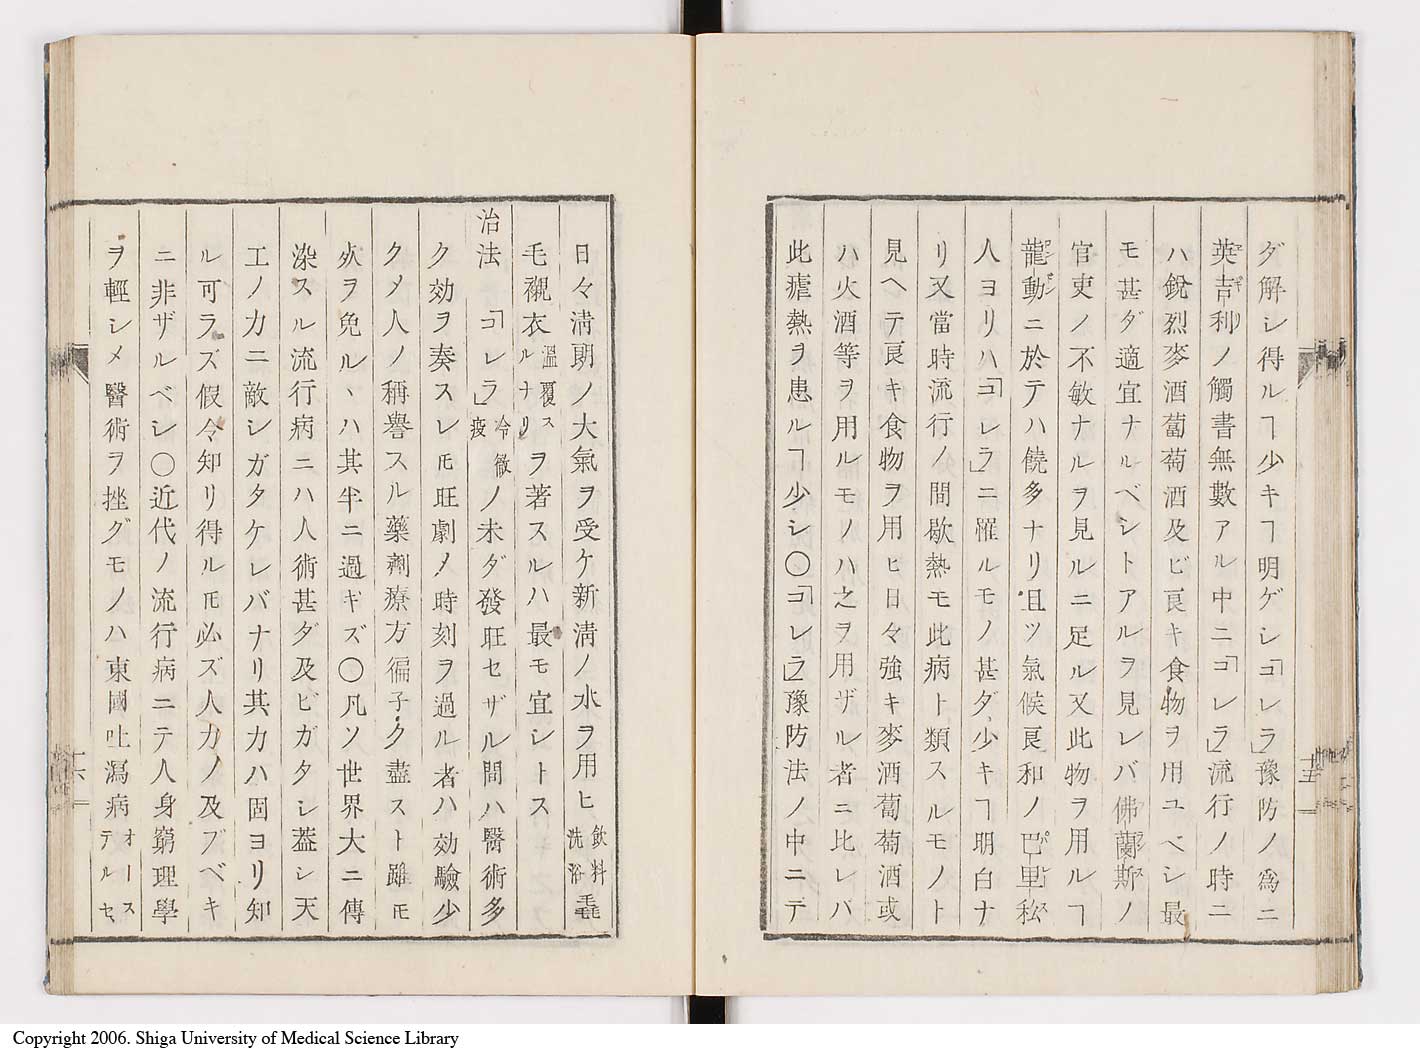 ダ解シ得ルヿ少キヿ明ゲシ「コレラ」豫防ノ爲ニ
英吉利ノ觸書無數アル中ニ「コレラ」流行ノ時ニ
ハ銳烈麥酒葡萄酒及ビ良キ食物ヲ用ユベシ最
モ甚ダ適宜ナルベシトアルヲ見レバ佛蘭斯ノ
官吏ノ不敏ナルヲ見ルニ足ル又此物ヲ用ルヿ
龍動ニ於テハ饒多ナリ且ツ氣候良和ノ巴里斯
人ヨリハ「コレラ」ニ罹ルモノ甚ダ少キヿ明白ナ
リ又當時流行ノ間歇熱モ此病ト類スルモノト
見ヘテ良キ食物ヲ用ヒ日々強キ麥酒葡萄酒或
ハ火酒等ヲ用ルモノハ之ヲ用ザル者ニ比レバ
此瘧熱ヲ患ルヿ少シ〇「コレラ」豫防法ノ中ニテ
十五
日々淸朗ノ大氣ヲ受ケ新淸ノ水ヲ用ヒ飲料洗浴毳
毛襯衣溫覆スルナリヲ著スルハ最モ宜シトス
治法 「コレラ」冷徴疫ノ未ダ發旺セザル間ハ醫術多
ク効ヲ奏スレ𪜈旺劇ノ時刻ヲ過ル者ハ効驗少
クメ人ノ稱譽スル藥劑療方徧子ク盡スト雖𪜈
死ヲ免ルヽハ其半ニ過ギズ〇凡ソ世界大ニ傳
染スル流行病ニハ人術甚ダ及ビガタシ蓋シ天
工ノ力ニ敵シガタケレバナリ其力ハ固ヨリ知
ル可ラズ假令知リ得ル𪜈必ズ人力ノ及ブベキ
ニ非ザルベシ〇近代ノ流行病ニテ人身窮理學
ヲ輕シメ醫術ヲ挫グモノハ東國吐瀉病オーステルセ
十六
Copyright 2006. Shiga University of Medical Science Library